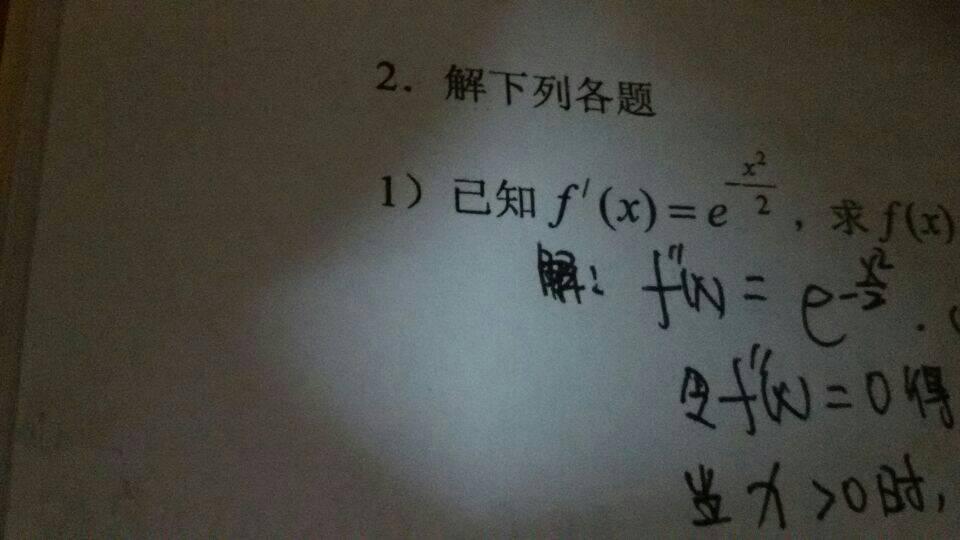 2. 解下列各题
1) 已知 f'(x) = e^{-\frac{x^2}{2}}, 求 f(x)
解: f''(x) = e^{-\frac{x^2}{2}} ·
令 f''(x) = 0 得
当 x > 0 时,